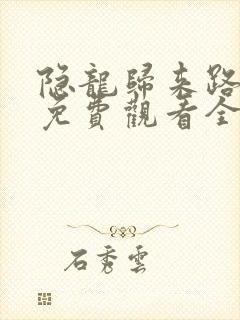 隐龍歸来路
免費觀看全
石秀雲